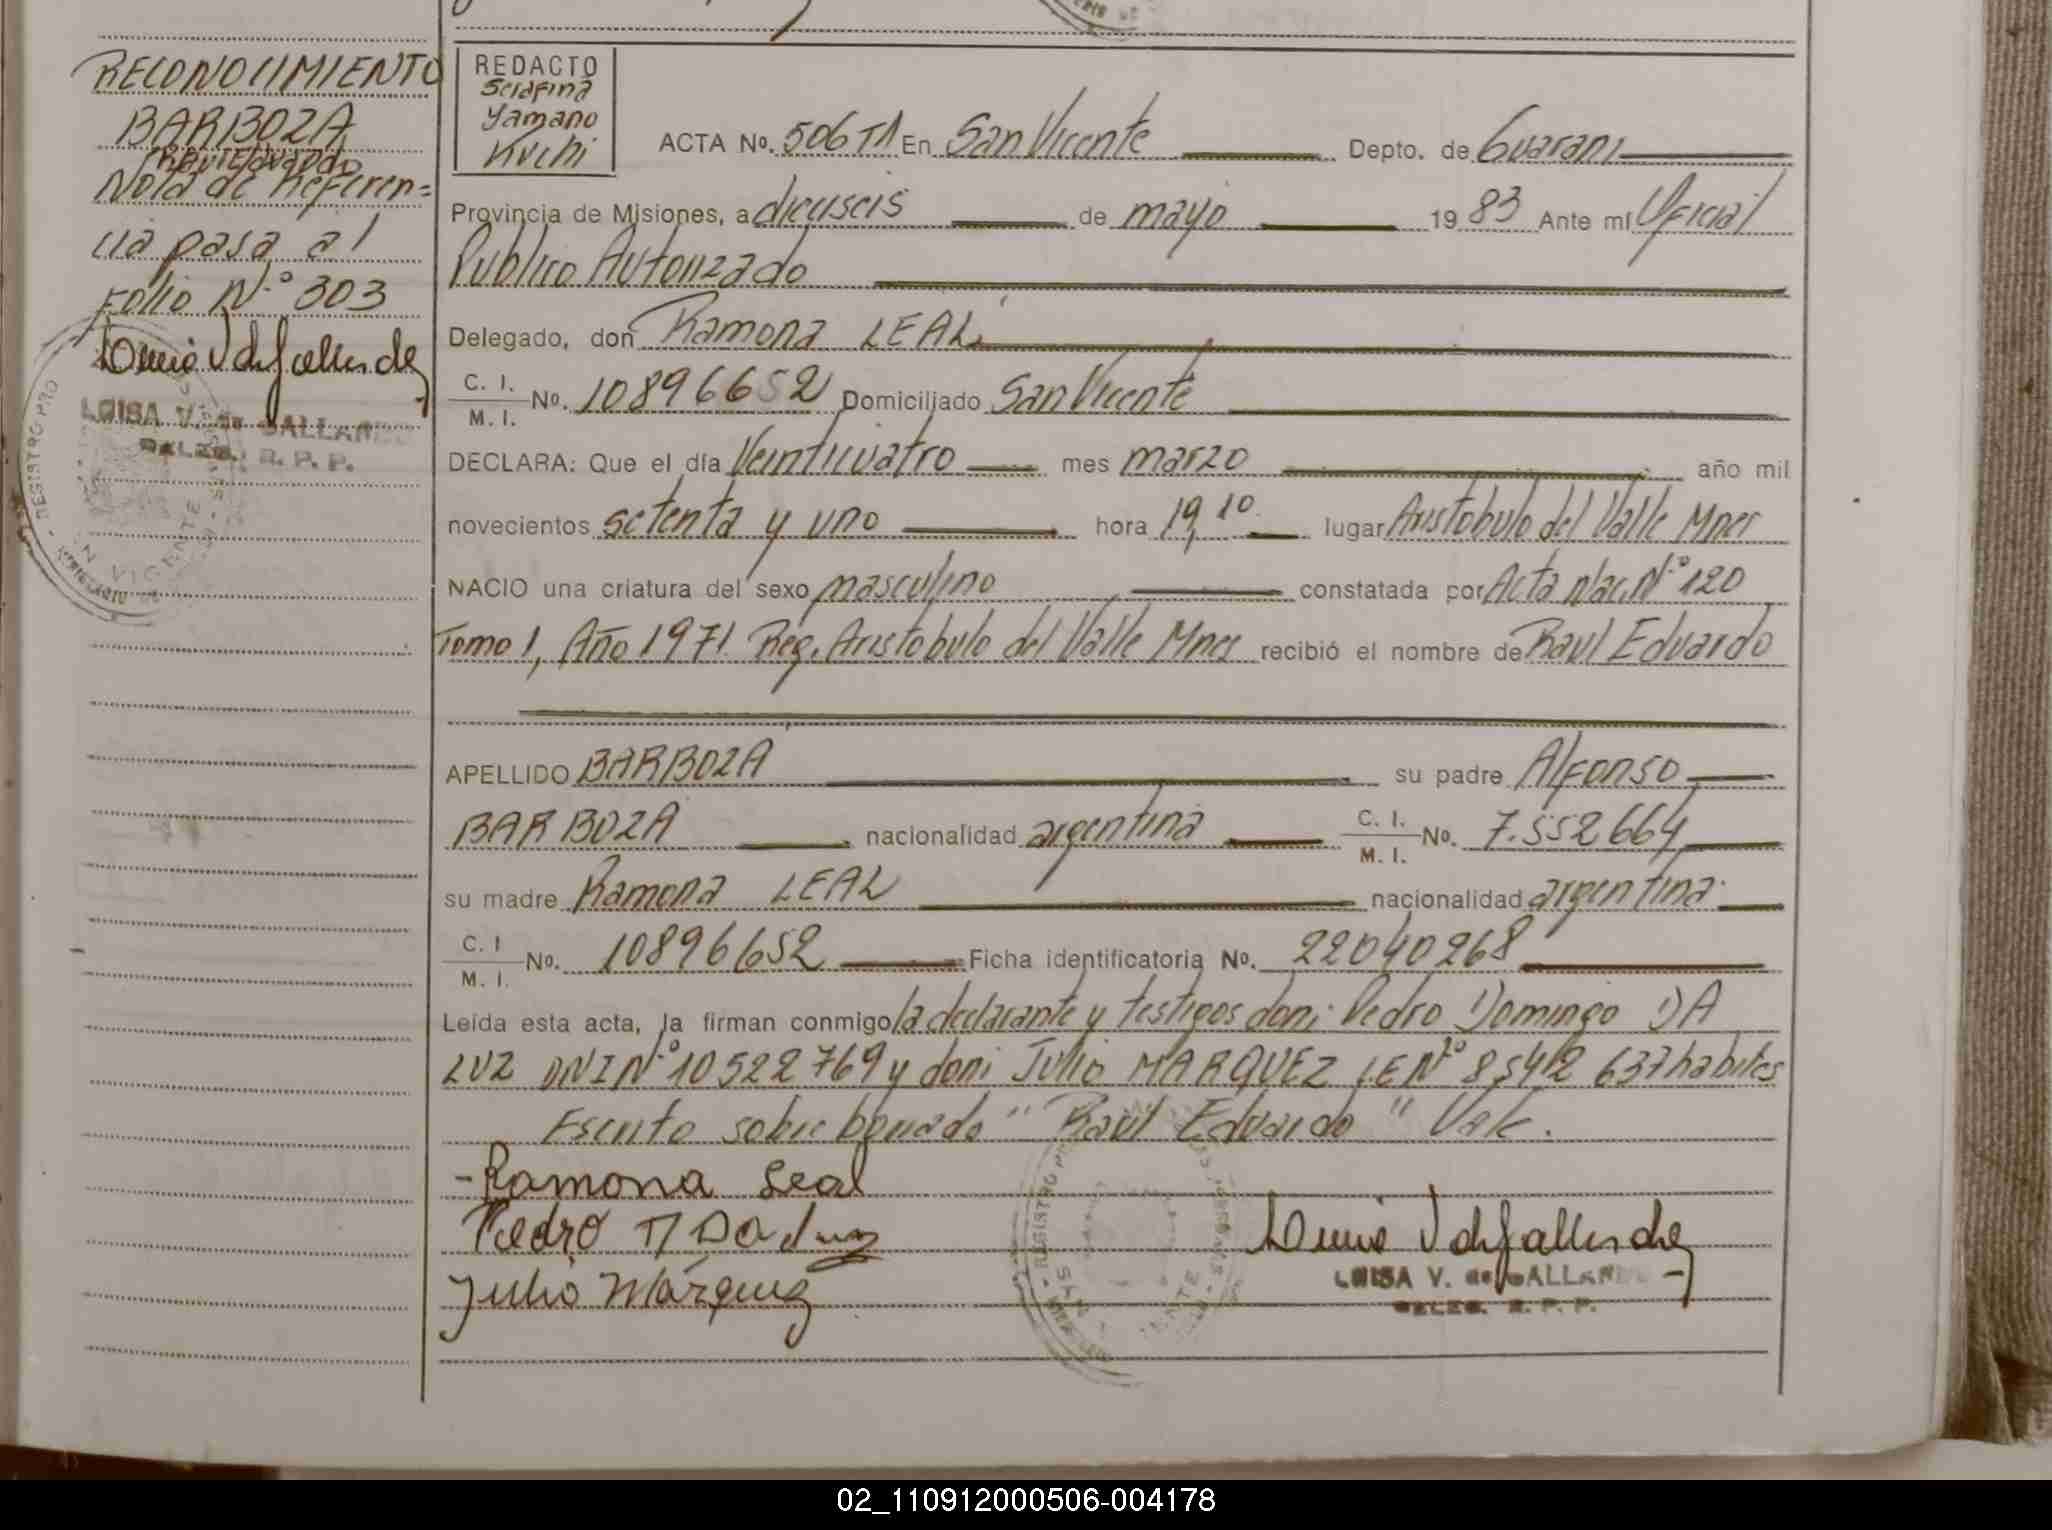 RECONOCIMIENTO
BARBOZA
Raul Eduardo
Nota de Referen=
cia pasa al
Folio N.º 303
LUISA V. de GALLAND
DELEG. R. P. P.
REDACTO
Serafina
Yamano
Kuchi
ACTA No. 506 T1 En San Vicente Depto. de Guarani
Provincia de Misiones, a dieciseis de mayo 19 83 Ante mí Oficial
Publico Autorizado
Delegado, don Ramona LEAL
C. I. / M. I. No. 10896652 Domiciliado San Vicente
DECLARA: Que el día Veinticuatro mes marzo año mil
novecientos setenta y uno hora 19,10 lugar Aristobulo del Valle Mnes
NACIO una criatura del sexo masculino constatada por Acta Nac. Nº 120
Tomo 1, Año 1971 Reg. Aristobulo del Valle Mnes recibió el nombre de Raul Eduardo
APELLIDO BARBOZA su padre Alfonso
BARBOZA nacionalidad argentina C. I. / M. I. No. 7.552664
su madre Ramona LEAL nacionalidad argentina
C. I / M. I. No. 10896652 Ficha identificatoria No. 22040268
Leída esta acta, la firman conmigo la declarante y testigos don: Pedro Domingo DA
LUZ DNI Nº 10522769 y don: Julio MARQUEZ LE Nº 8542 637 habiles
Escrito sobre borrado "Raúl Eduardo" Vale.
-Ramona Leal
Pedro D Da Luz
Julio Márquez
REGISTRO PRO
SAN VICENTE
LUISA V. de GALLAND
DELEG. R. P. P.
02_110912000506-004178